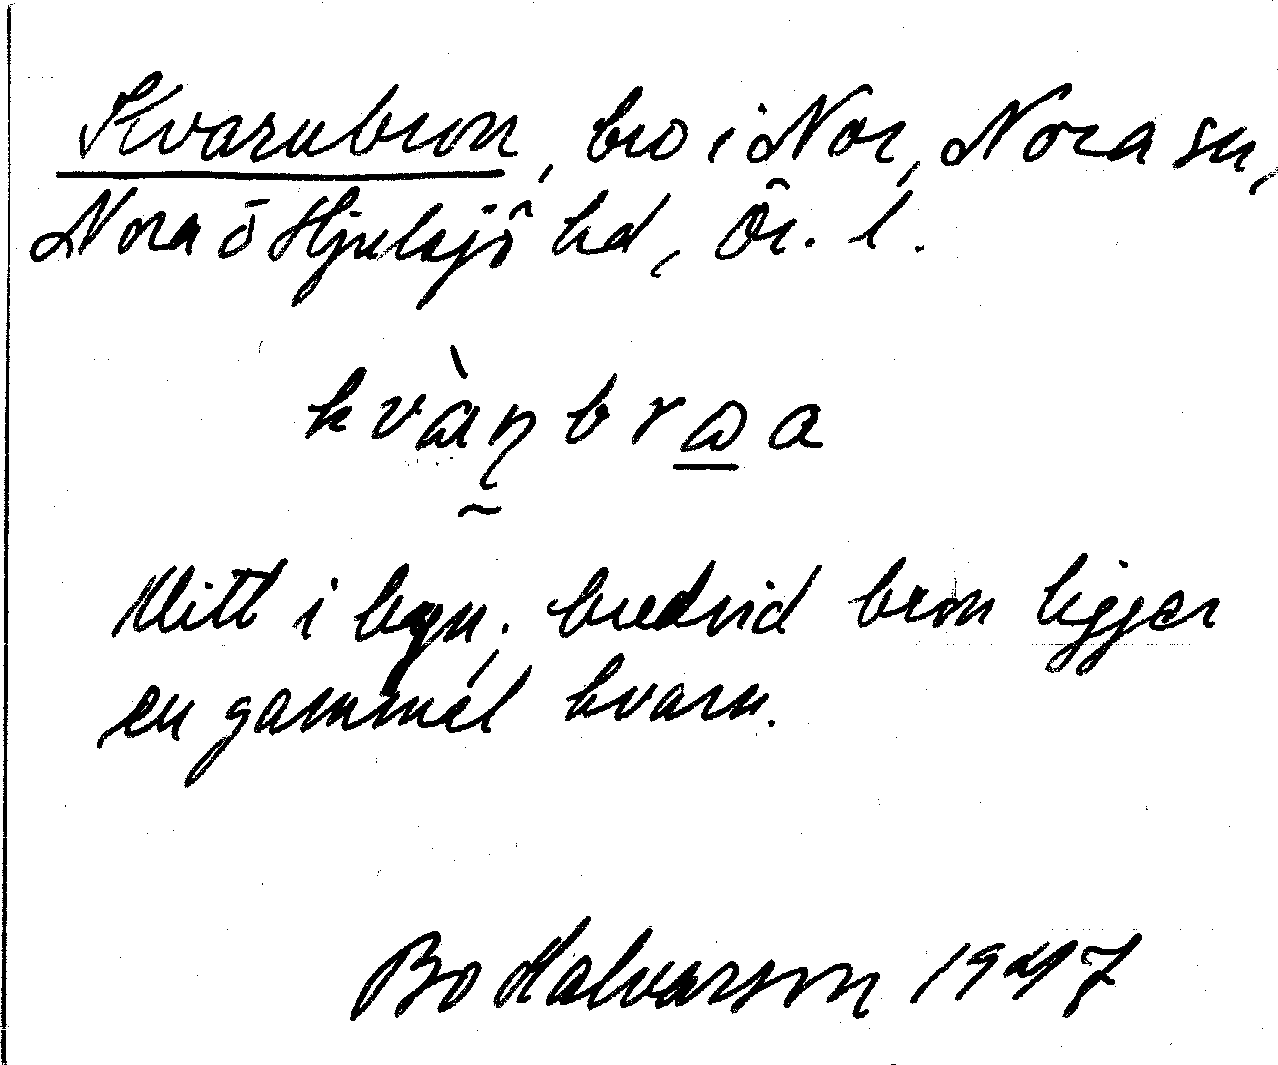 Kvarnbron, bro i Nor, Nora sn,
Nora ō Hjulsjö hd, Ör. l.
kvàɳbrɷa
Mitt i byn, bredvid bron ligger
en gammal kvarn.
Bo Halvarson 1947